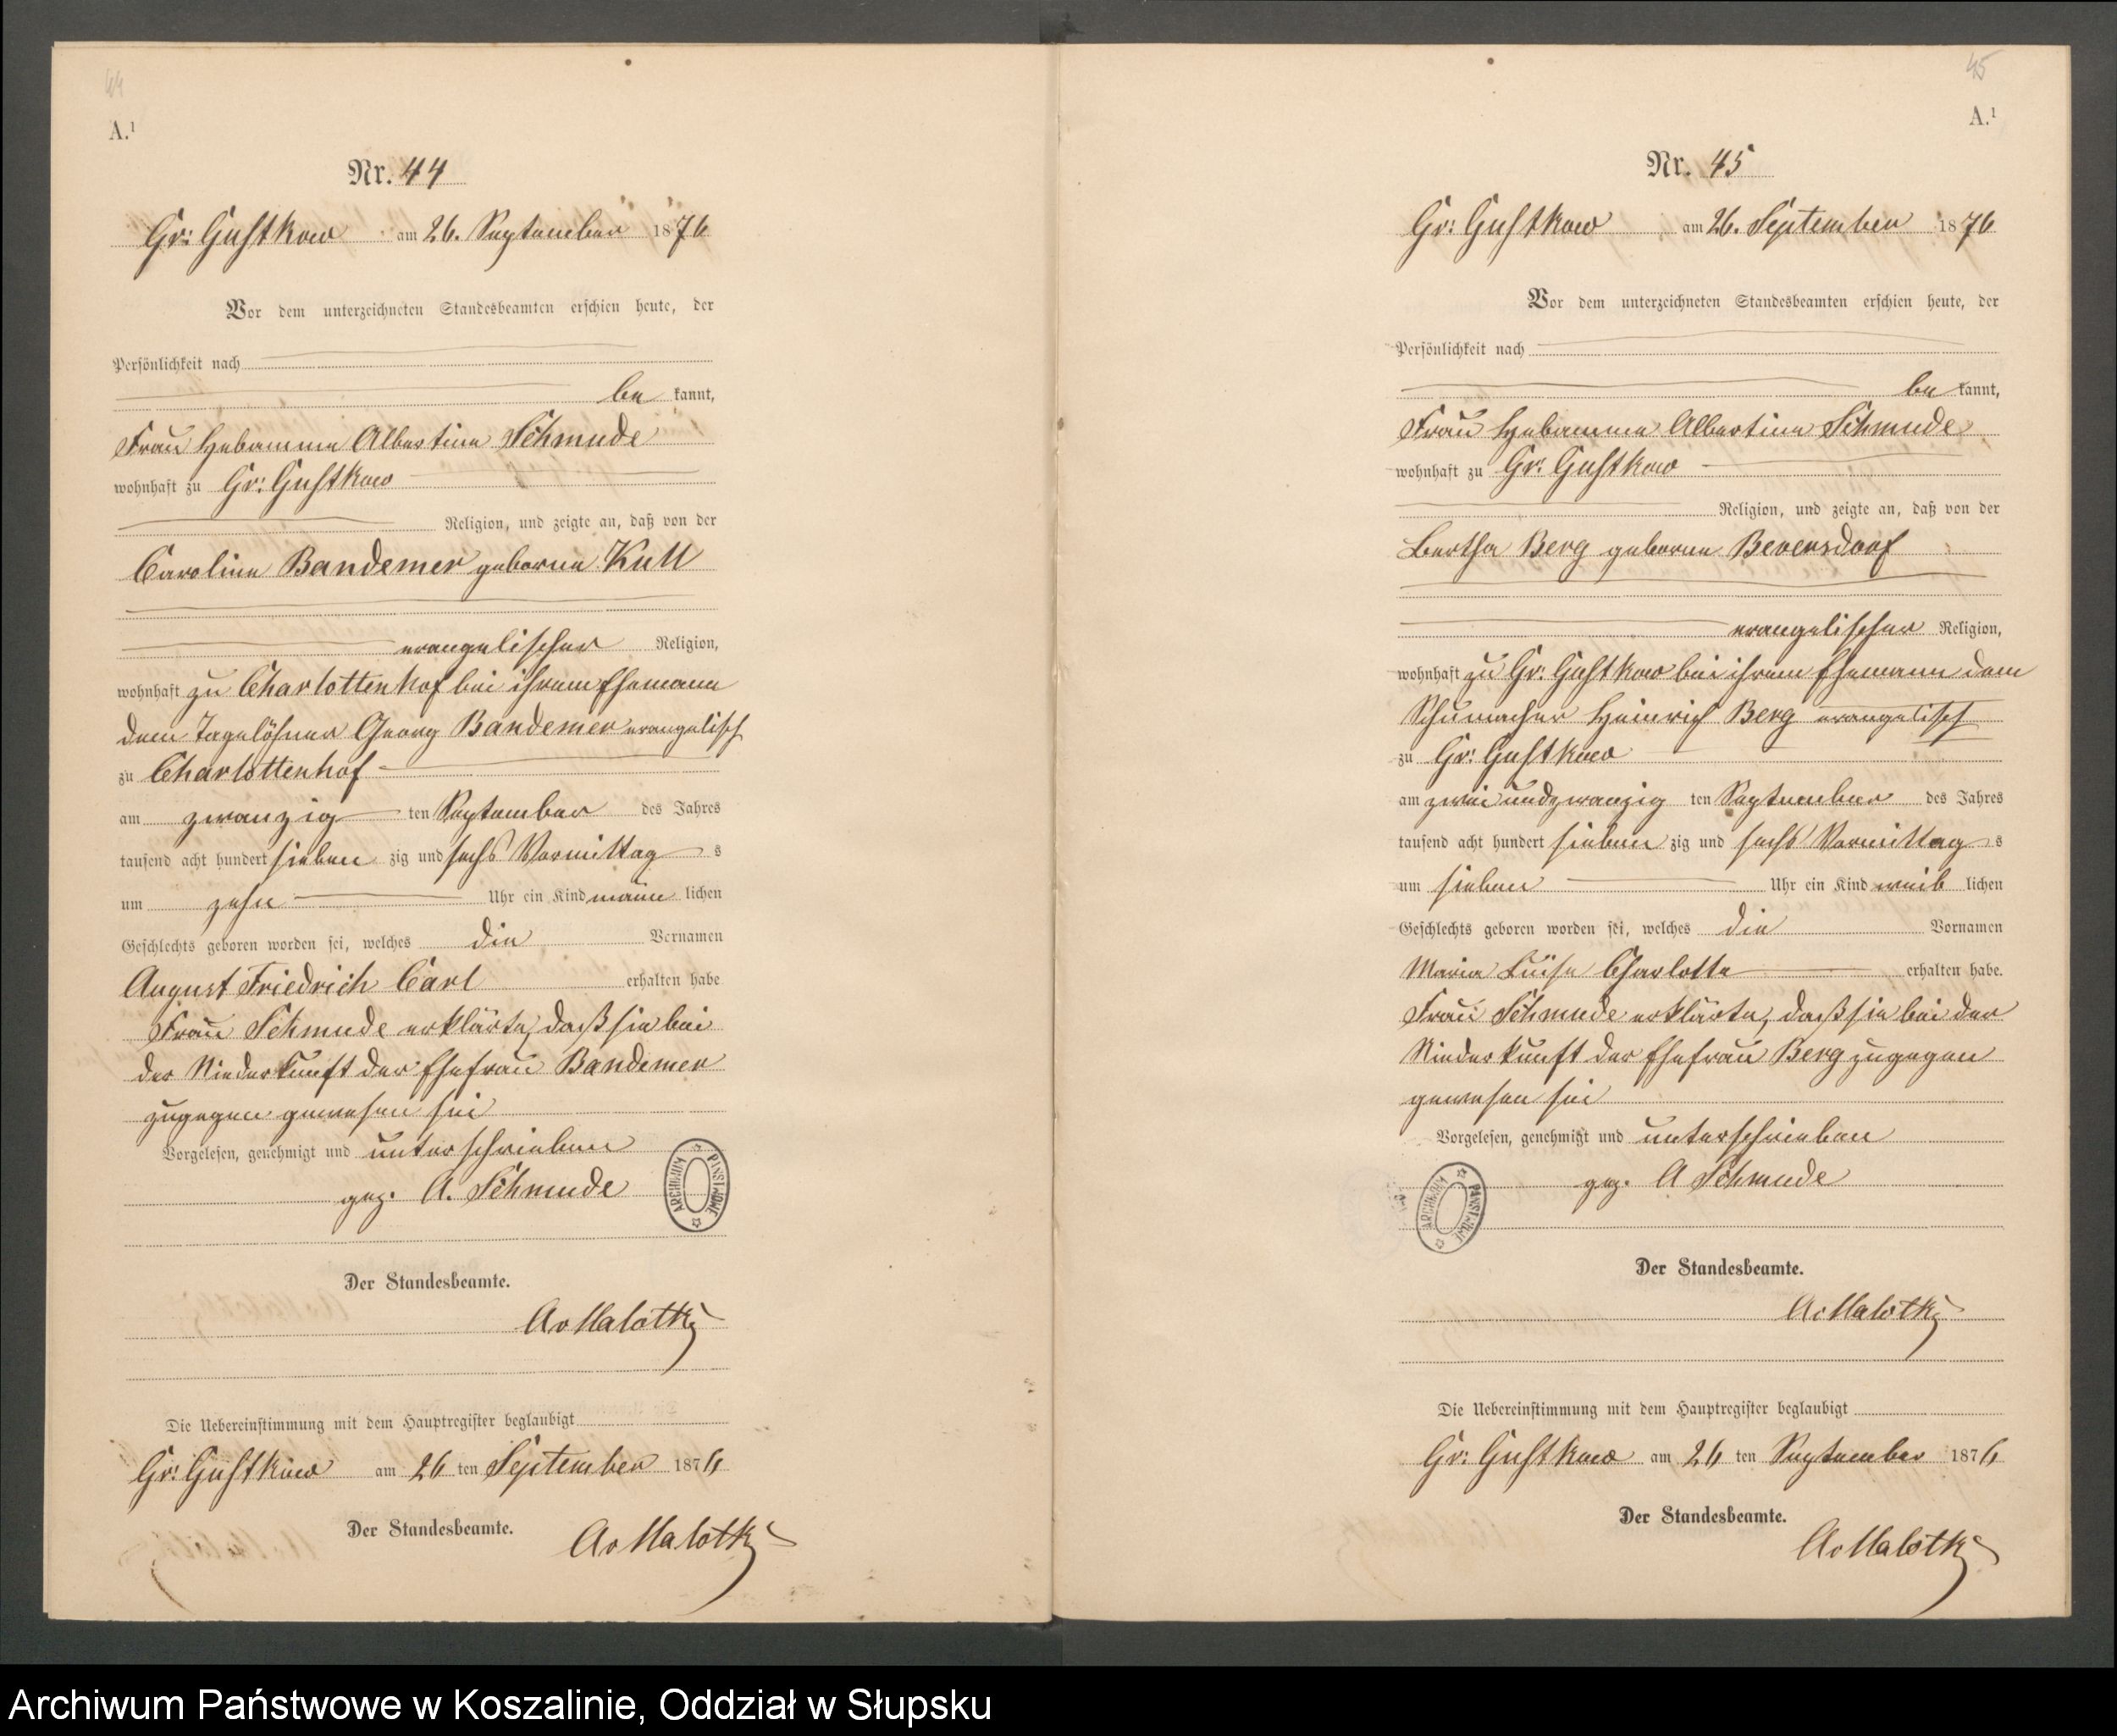 44
A.¹
Nr. 44
Gr: Gustkow am 26. September 1876
Vor dem unterzeichneten Standesbeamten erschien heute, der
Persönlichkeit nach
be kannt,
Frau Hebamme Albertine Schmude
wohnhaft zu Gr: Gustkow
Religion, und zeigte an, daß von der
Caroline Bandemer geborne Kull
evangelischer Religion,
wohnhaft zu Charlottenhof bei ihrem Ehemann
dem Tagelöhner Georg Bandemer evangelisch
zu Charlottenhof
am zwanzig ten September des Jahres
tausend acht hundert sieben zig und sechs Vormittag s
um zehn Uhr ein Kind männ lichen
Geschlechts geboren worden sei, welches die Vornamen
August Friedrich Carl erhalten habe
Frau Schmude erklärte, daß sie bei
der Niederkunft der Ehefrau Bandemer
zugegen gewesen sei
Vorgelesen, genehmigt und unterschrieben
gez. A. Schmude
ARCHIWUM PAŃSTWOWE
Der Standesbeamte.
AvMalottky
Die Uebereinstimmung mit dem Hauptregister beglaubigt
Gr: Gustkow am 26 ten September 1876
Der Standesbeamte. AvMalottky
45
A.¹
Nr. 45
Gr: Gustkow am 26. September 1876
Vor dem unterzeichneten Standesbeamten erschien heute, der
Persönlichkeit nach
be kannt,
Frau Hebamme Albertine Schmude
wohnhaft zu Gr: Gustkow
Religion, und zeigte an, daß von der
Bertha Berg geborne Beversdorf
evangelischer Religion,
wohnhaft zu Gr: Gustkow bei ihrem Ehemann dem
Schumacher Heinrich Berg evangelisch
zu Gr: Gustkow
am zwei und zwanzig ten September des Jahres
tausend acht hundert sieben zig und sechs Vormittag s
um sieben Uhr ein Kind weib lichen
Geschlechts geboren worden sei, welches die Vornamen
Maria Luise Charlotte erhalten habe.
Frau Schmude erklärte, daß sie bei der
Niederkunft der Ehefrau Berg zugegen
gewesen sei
Vorgelesen, genehmigt und unterschrieben
gez. A Schmude
ARCHIWUM PAŃSTWOWE
Der Standesbeamte.
AvMalottky
Die Uebereinstimmung mit dem Hauptregister beglaubigt
Gr: Gustkow am 26 ten September 1876
Der Standesbeamte.
AvMalottky
Archiwum Państwowe w Koszalinie, Oddział w Słupsku